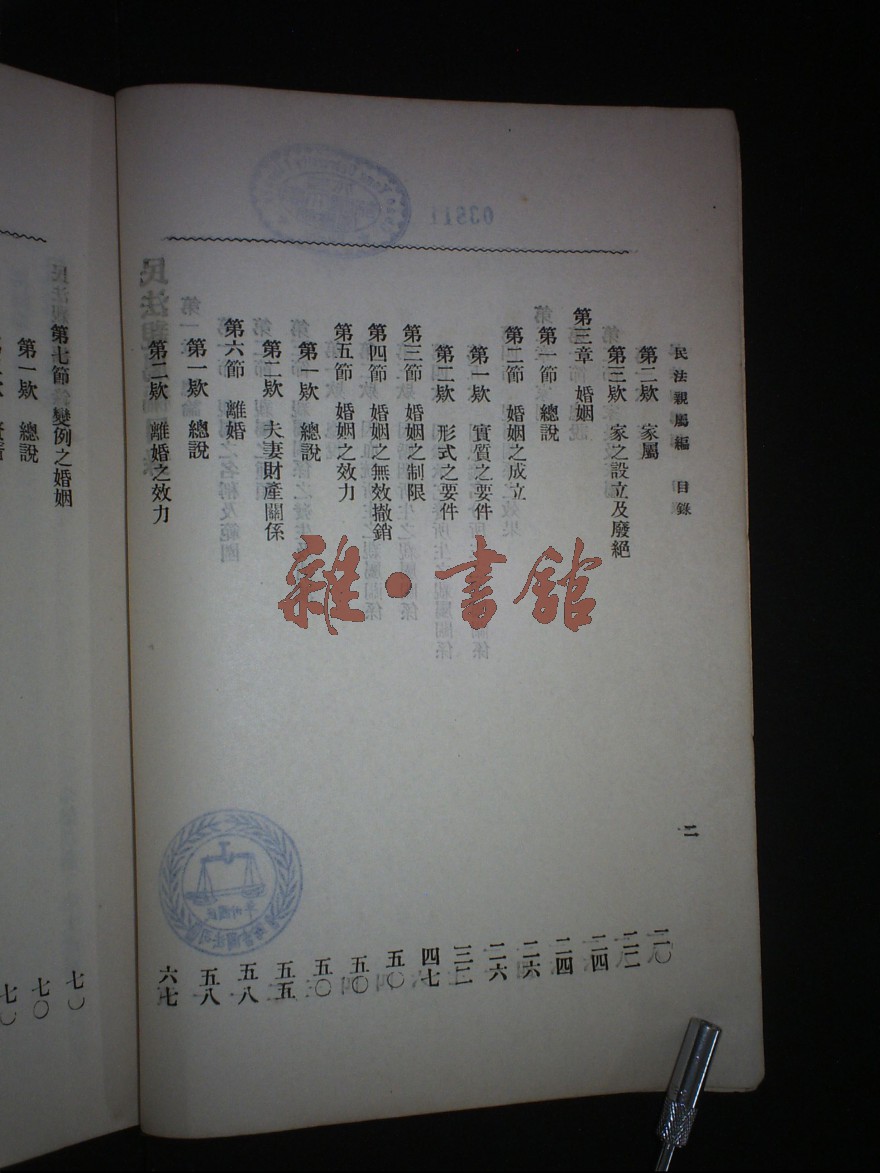 民法親屬編 目錄 二
第二欵 家屬 二〇
第三欵 家之設立及廢絕 二二
第三章 婚姻 二四
第一節 總說 二四
第二節 婚姻之成立 二六
第一欵 實質之要件 二六
第二欵 形式之要件 三二
第三節 婚姻之制限 四七
第四節 婚姻之無效撤銷 五〇
第五節 婚姻之效力 五〇
第一欵 總說 五〇
第二欵 夫妻財產關係 五五
第六節 離婚 五八
第一欵 總說 五八
第二欵 離婚之效力 六七
第七節 變例之婚姻 七〇
第一欵 總說 七〇
七〇
雜·書館